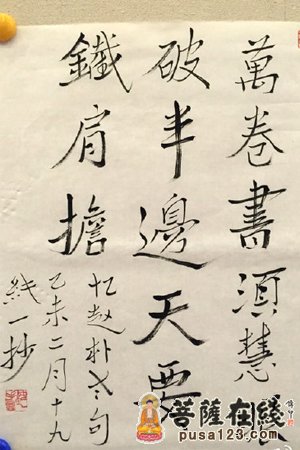 萬卷書須慧眼
破半邊天要
鐵肩擔
忆赵朴老句
乙未二月十九
一抄
菩薩在綫
pusa123.com